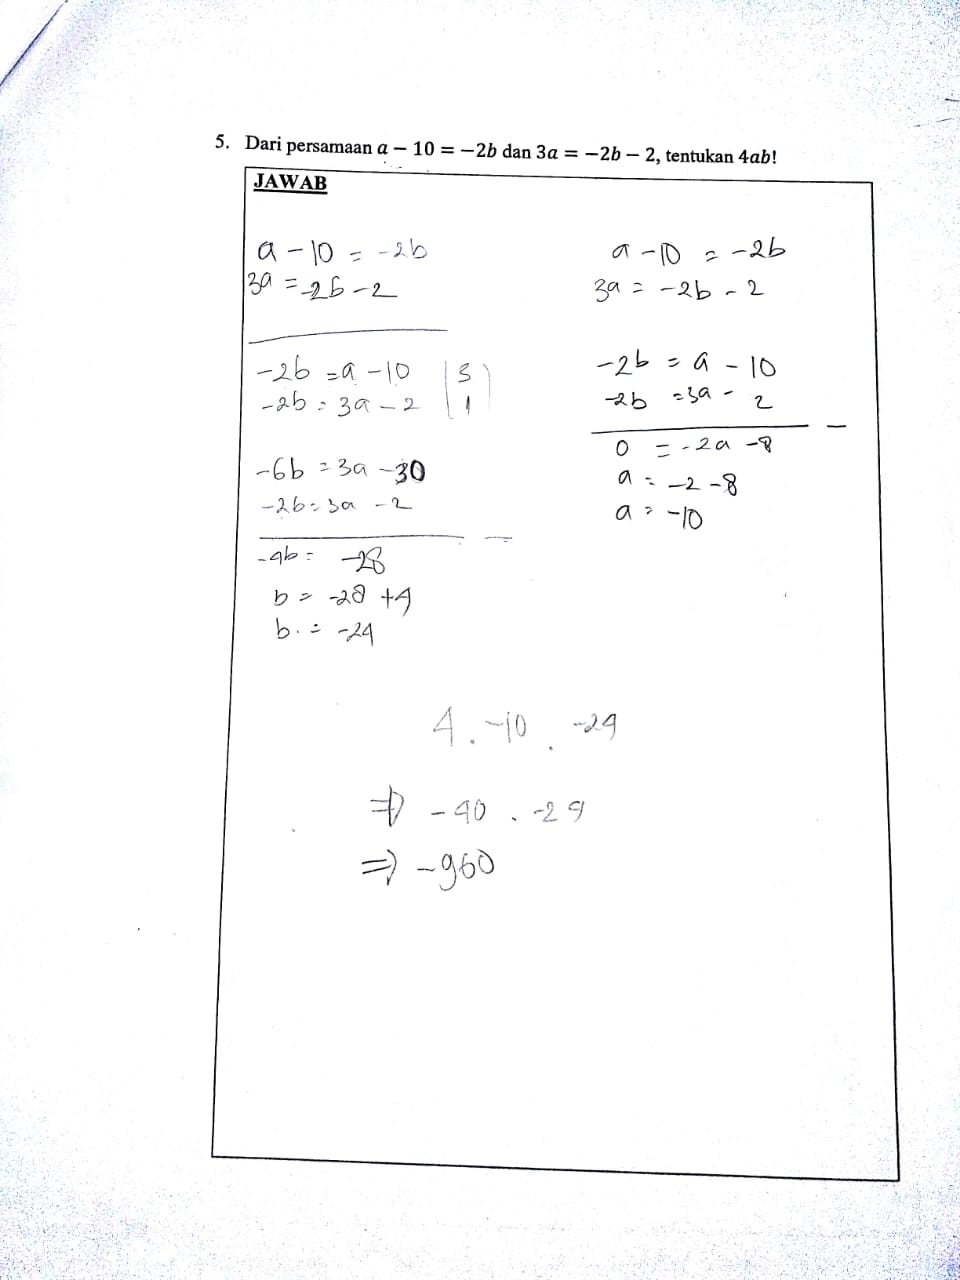 5. Dari persamaan a − 10 = −2b dan 3a = −2b − 2, tentukan 4ab!
JAWAB
a − 10 = −2b
3a = −2b − 2
−2b = a − 10 | 3 |
−2b = 3a − 2 | 1 |
−6b = 3a − 30
−2b = 3a − 2
−4b = −28
b = −28 + 4
b. = −24
a − 10 = −2b
3a = −2b − 2
−2b = a − 10
−2b = 3a − 2
0 = −2a − 8
a = −2 − 8
a = −10
4 . −10 . −24
⇒ −40 . −24
⇒ −960